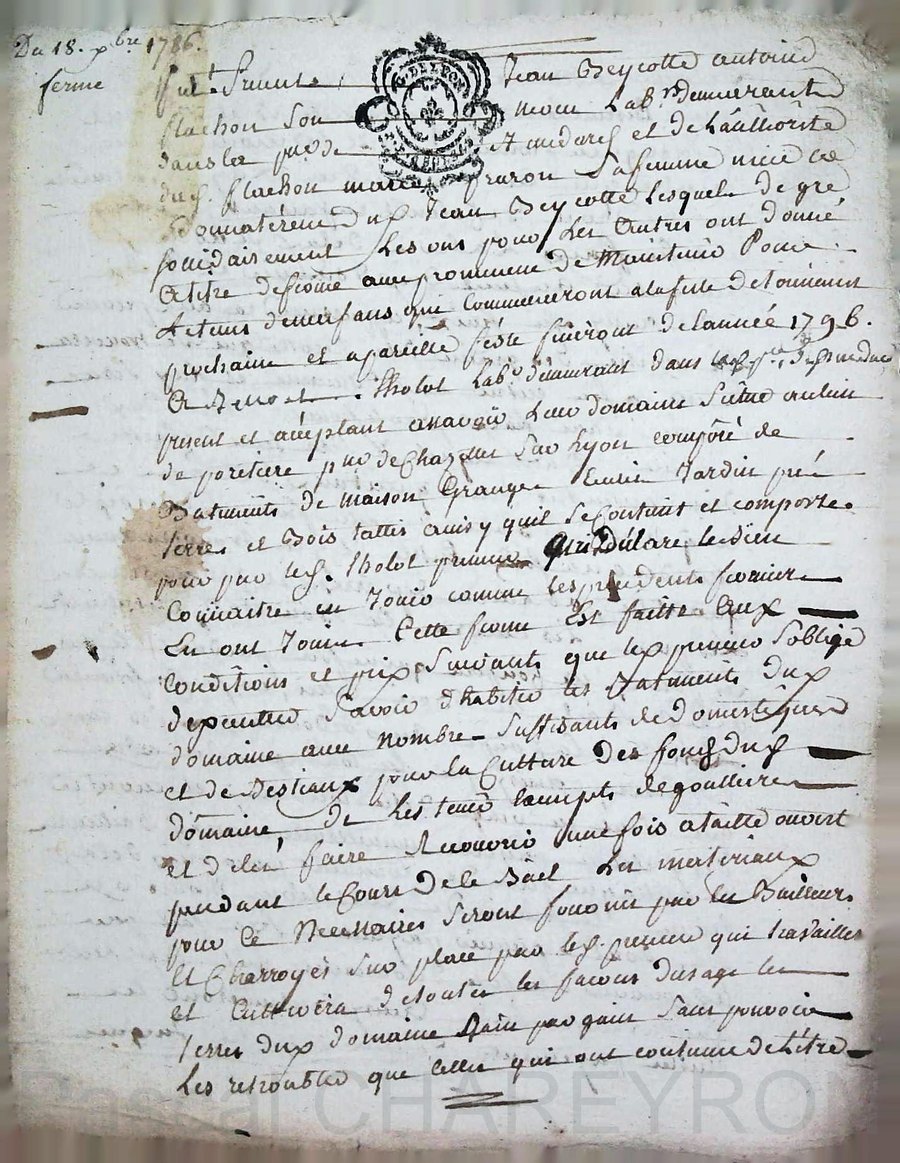 Du 18. xbre 1786.
ferme
G. DE LYON
fut présents Jean Beycotte antoine
flachon son labr. demeurants
dans la psse de St andard et de l'authorité
dud. flachon marie sa femme niece et
donnatéreine dux Jean Beycotte Lesquels de gré
solidairement Les uns pour Les Autres ont donné
a titre de ferme avec promesse de Maintenir
de neuf ans qui Commenceront a la feste de toussaint
prochaine et apareille féste finiront de l'année 1796.
A Benoit tholot Labr. demeurant dans
présent et acceptant assavoir Leur domaine Situé au lieu
de psse de Chazelles sur Lyon composé de
Batiments de maison Grange Ecurie Jardin pré
terres et Bois taillis ainsy quil se Contient et comporte
pour par led. tholot preneur le bien
Connaitre en Jouir comme les précédents fermiers
En ont Joui. Cette ferme Est faitte aux
Conditions et prix Suivants que lex preneur S'oblige
d'executer Savoir d'habiter les Batiments dux
domaine avec nombre Suffisants de domestiques
et de Bestiaux pour la Culture des fonds dud
Domaine de Les tenir Exempts de gouttiere
et de les faire Recouvrir une fois a taille ouvert
pendant le Cours de le Bail Les materiaux
pour ce Necessaires Seront fournis par les Bailleurs
Et Charroyés Sur place par led. preneur qui travaillera
et Cultivera de toutes les facons d'usage les
terres dux domaine Sain par gain Sans pouvoir
Les retroubler que celles qui ont coutume de L'étre
Pascal CHAREYRON